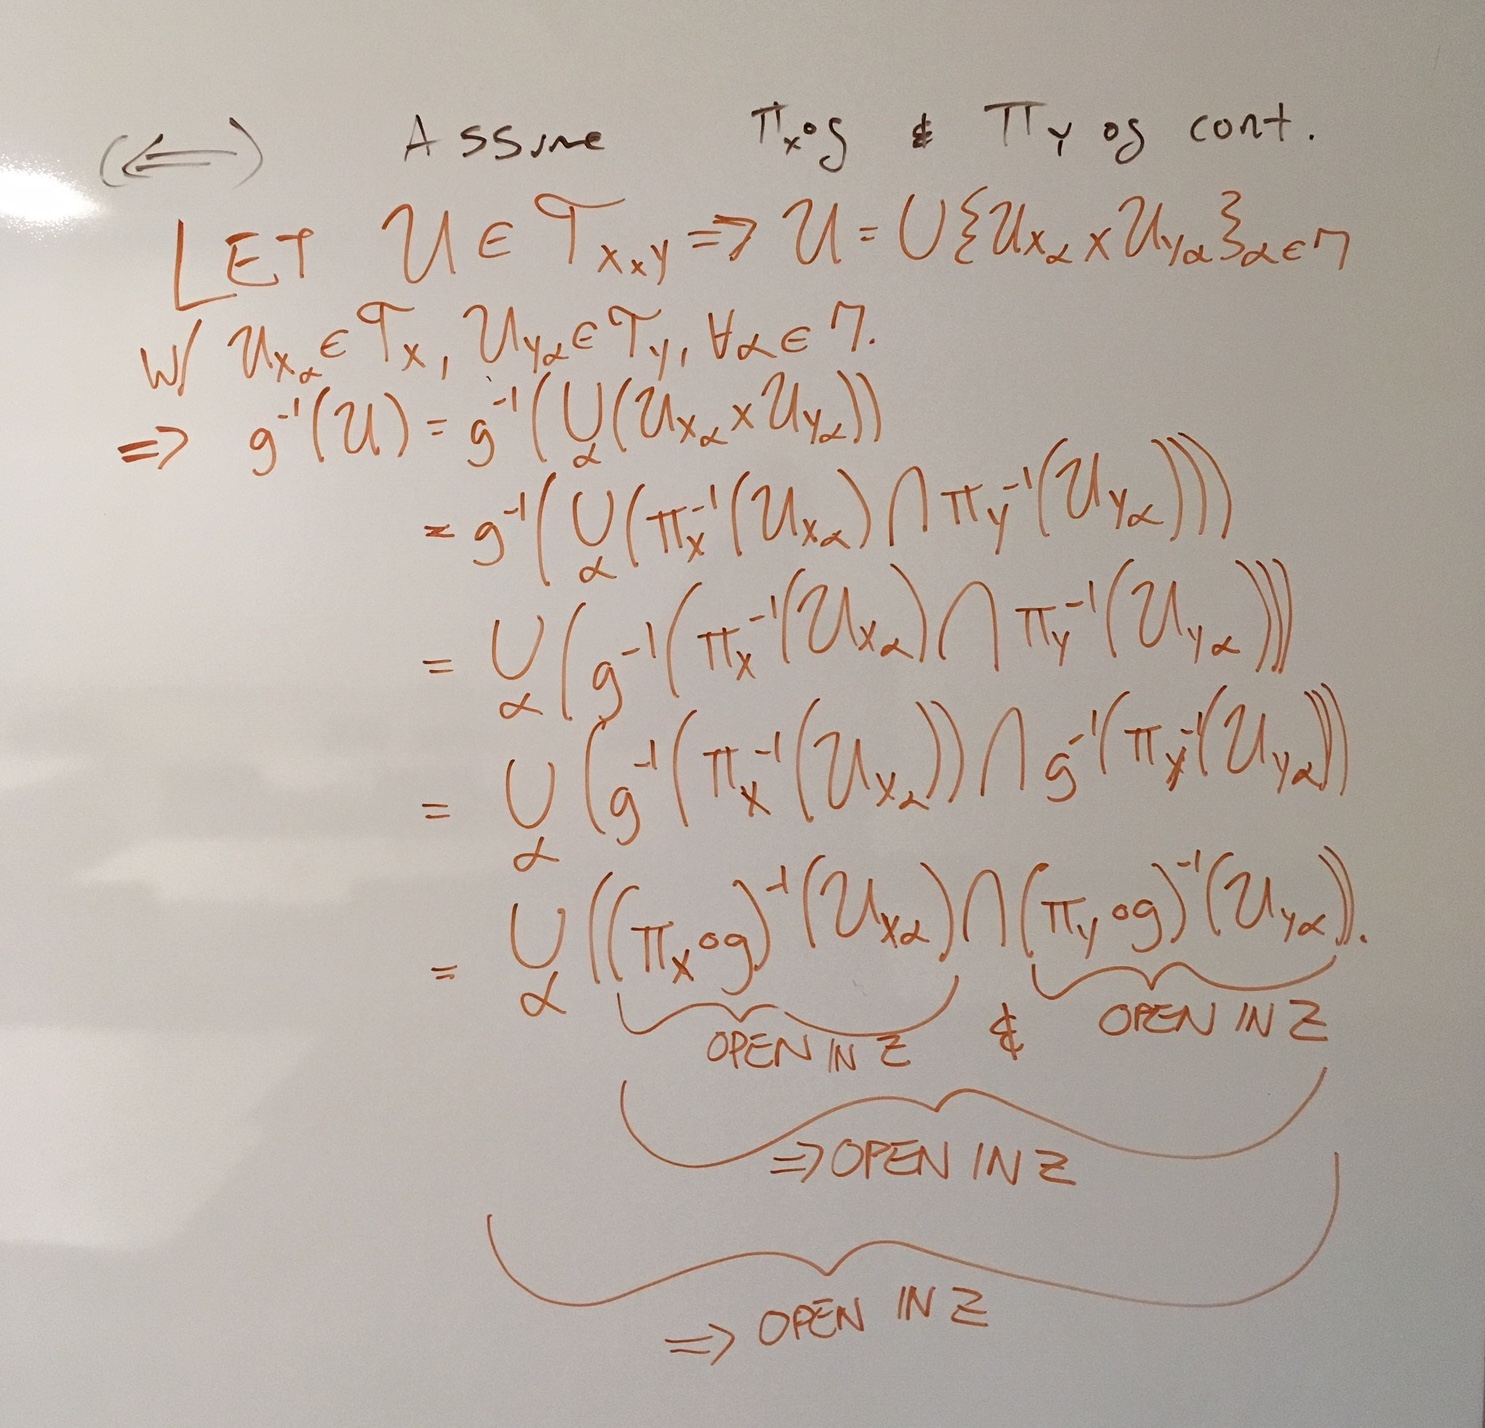 (⇐) Assume π_X∘g & π_Y∘g cont.
LET 𝒰 ∈ 𝒯_{X×Y} ⇒ 𝒰 = ∪{𝒰_{Xα} × 𝒰_{Yα}}_{α∈Γ}
W/ 𝒰_{Xα} ∈ 𝒯_X, 𝒰_{Yα} ∈ 𝒯_Y, ∀α ∈ Γ.
⇒ g⁻¹(𝒰) = g⁻¹(∪_α(𝒰_{Xα} × 𝒰_{Yα}))
= g⁻¹(∪_α(π_X⁻¹(𝒰_{Xα}) ∩ π_Y⁻¹(𝒰_{Yα})))
= ∪_α(g⁻¹(π_X⁻¹(𝒰_{Xα}) ∩ π_Y⁻¹(𝒰_{Yα})))
= ∪_α(g⁻¹(π_X⁻¹(𝒰_{Xα})) ∩ g⁻¹(π_Y⁻¹(𝒰_{Yα})))
= ∪_α((π_X∘g)⁻¹(𝒰_{Xα}) ∩ (π_Y∘g)⁻¹(𝒰_{Yα})).
OPEN IN Z & OPEN IN Z
⇒ OPEN IN Z
⇒ OPEN IN Z